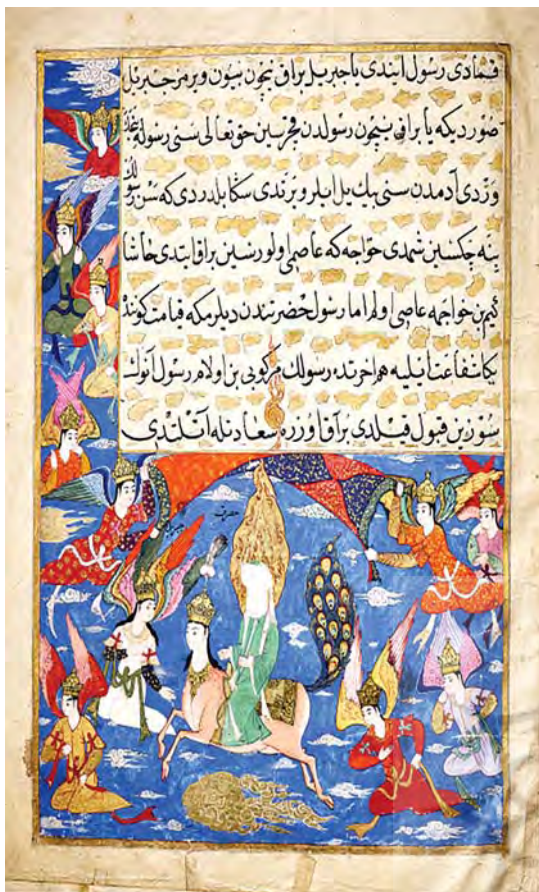 رسول ایتدی یا جبریل براق نیچون بیون ویرمز جبریل
صوردیکه یا براق نیچون رسولدن قچرسین حق تعالی سنی رسوله
وردی آدمدن سنی بیك ییل ایلرو یرتدی سکا بلدردی که سن رسولك
بینه جکسین شمدی خواجه که عاصیمی اولورسین براق ایتدی حاشا
کیم بن خواجمه عاصی اولم اما رسول حضرتندن دیلرمکه قیامت کوننده
بکا شفاعت ایلیه هم آخرتده رسولك مرکوبی بن اولام رسول آنوك
سوزین قبول قیلدی براق اوزره سعادتله آتلندی
حضرت